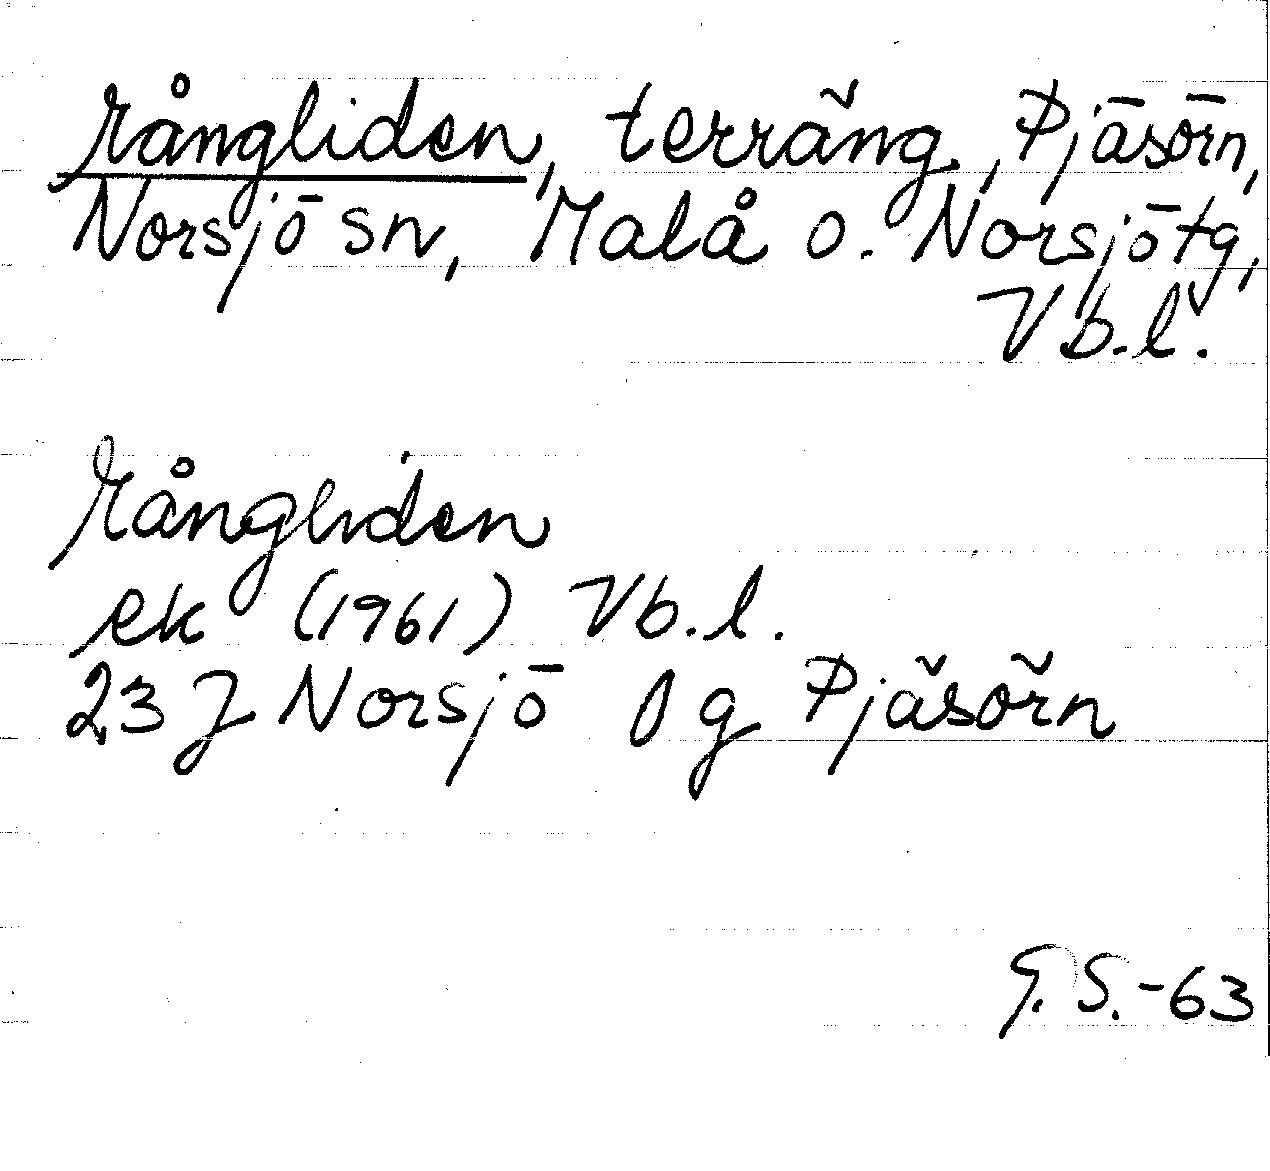 Rångliden, terräng, Pjäsörn,
Norsjö sn, Malå o. Norsjö tg,
Vb.l.
Rångliden
ek (1961) Vb.l.
23 J Norsjö 0 g Pjäsörn
G.S.-63